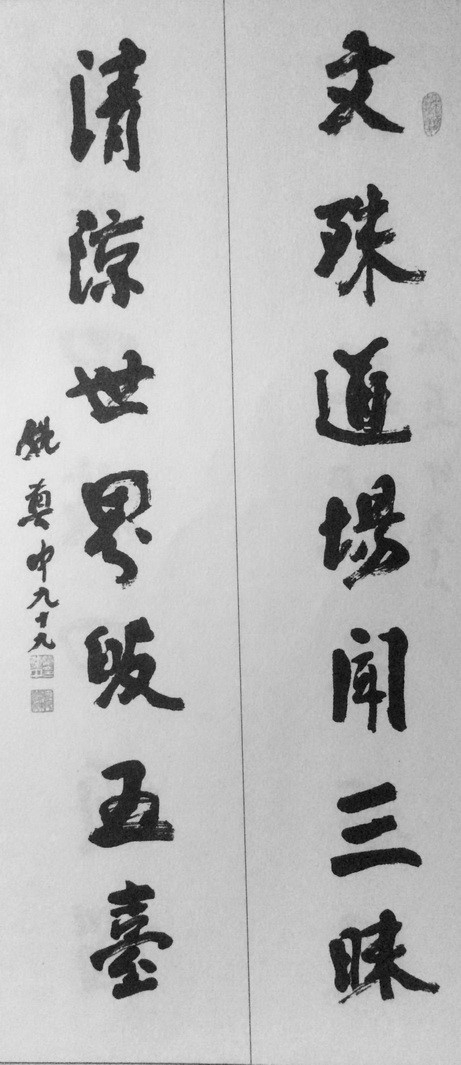 文殊道場聞三昧
清涼世界皈五臺
姚奠中九十九